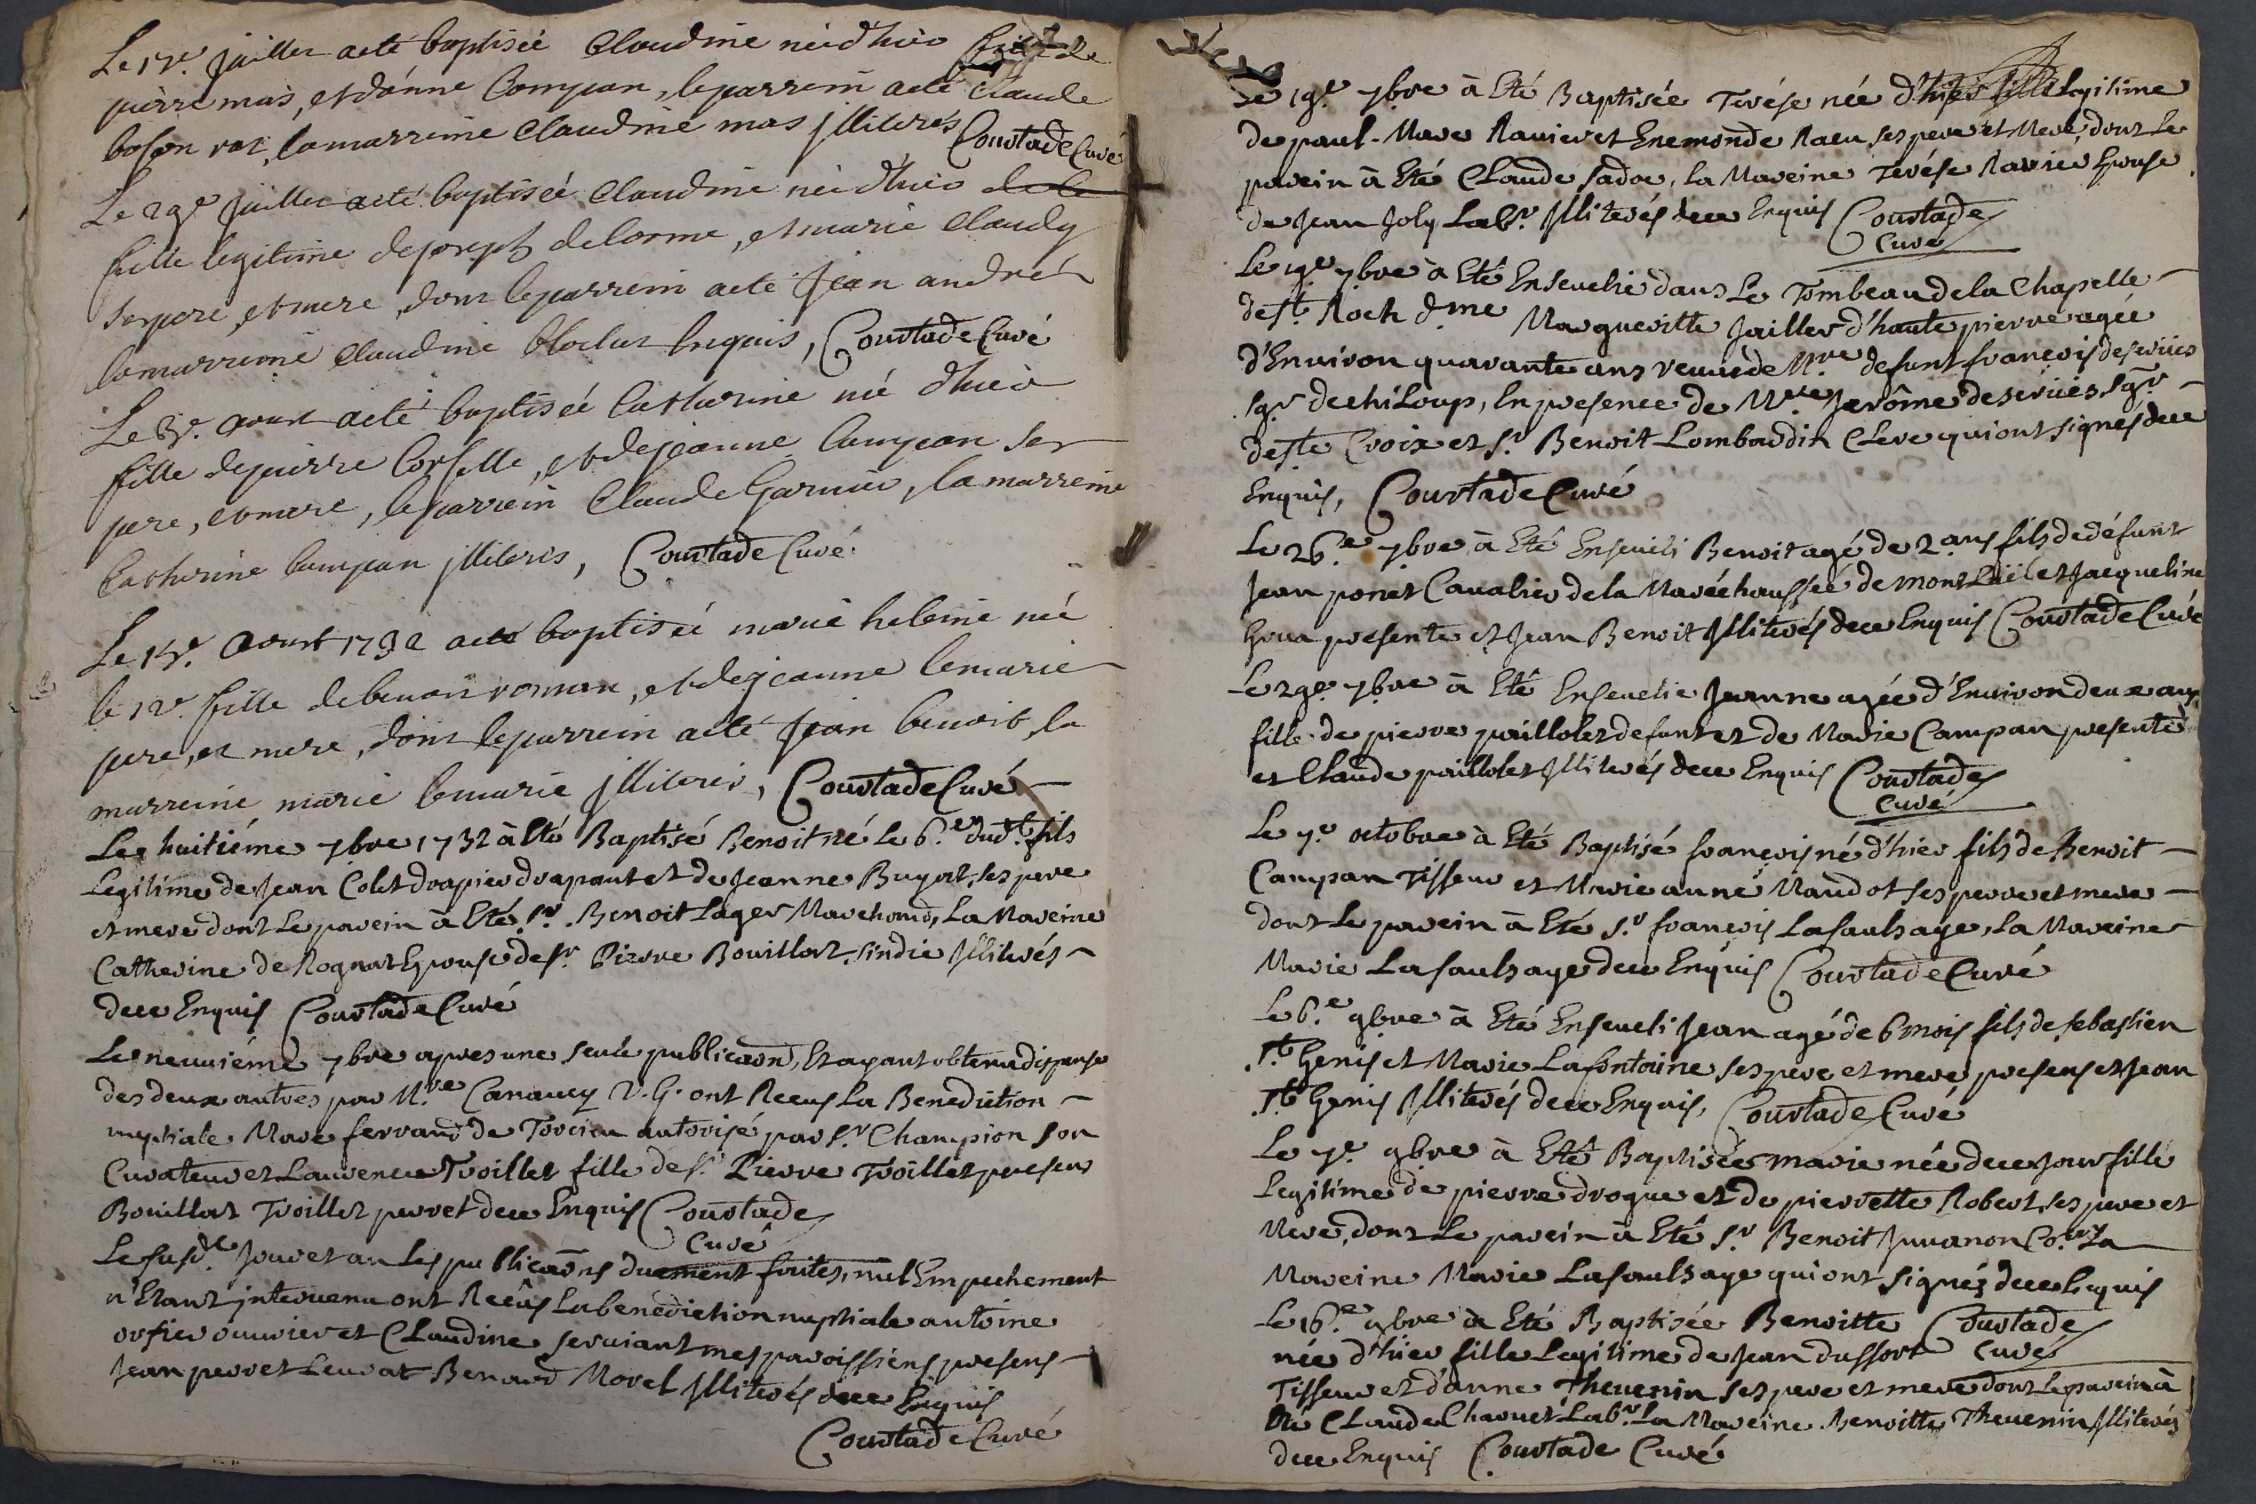 Le 17e. juillet a eté baptisée Claudine née d'hier fille de
pierre mas, et d'anne Campan, le parrein a eté Claude
boson rat, la marreine Claudine mas jlliterés Courtade Curé
Le 29e juillet a eté baptisée Claudine née d'hier
fille legitime de joseph delorme, et marie Claudy
ses pere, et mere, dont le parrein a eté jean andré
la marreine Claudine enquis, Courtade Curé
Le aoust a eté baptisée Catherine née d'hier
fille de pierre Corselle, et de jeanne Campan ses
pere, et mere, le parrein Claude Garnier, la marreine
Catherine Campan jlliterés, Courtade Curé
Le aoust 1732 a eté baptisée marie heleine née
le 12e. fille de benoit roman, et de jeanne lemarie
pere, et mere, dont le parrein a eté jean benoit, la
marreine marie lemarie jlliterés, Courtade Curé
Le huitiéme 7bre 1732 à Eté Baptisé Benoit né le 6.e dud.t fils
Legitime de Jean Colet drapier drapant et de Jeanne Buyat, ses pere
et mere dont Le parein à Eté Sr. Benoit Lager Marchand, La Mareine
Catherine de Rognat Epouse de Sr. Pierre Bouillat sindic Jlliterés
dece Enquis Courtade Curé
Le neuviéme 7bre apres une seule publicaõn, Et ayant obtenu dispense
des deux autres par Mre Canaucy V. G. ont Receus La Benediction
nuptiale Marc ferrand de Torcieu autorisé par Sr. Champion son
Curateur et Laurence Troillet fille de Sr. Pierre Troillet presens
Bouillat Troillet perret dece Enquis Courtade
Curé
Le susde. Jour et an Les publicaõns duement faites, nul Empechement
n'Etant jntervenu ont Receus La benediction nuptiale antoine
orfier ouvrier et CLaudine serviant mes paroissiens presens
Jean perret Leurat Benard Morel Jlliterés dece Enquis
Courtade Curé
Le 19e 7bre à Eté Baptisée Terése née d'hier fille Legitime
de paul-Marc Ravier et Enemonde Raeu ses pere et Mere, dont Le
parein à Eté CLaude Sadoc, La Mareine Terése Ravier Epouse
de Jean Joly Labr. Jlliterés dece Enquis Courtade
Curé
Le 19e 7bre à Eté Ensevelie dans Le Tombeau de la Chapelle
de St. Roch d.me Margueritte Jailler d'haute pierre agée
d'Environ quarante ans veuve de Mre defunt françois de seriies
Sgr de chiLoup, En presence de Mre Jerôme de seriies, Sgr
de Ste Croix et Sr. Benoit Lombardin Clerc qui ont signés dece
Enquis, Courtade Curé
Le 26.e 7bre à Eté Enseveli Benoit agé de 2 ans fils de défunt
Jean ponet Cavalier de la Maréchaussée de montLuel et Jacqueline
Goux presente et Jean Benoit Jlliterés dece Enquis Courtade Curé
Le 29e 7bre à Eté Ensevelie Jeanne agée d'Environ deux ans
fille de pierre paillolet defunt et de Marie Campan presente
et CLaude paillolet Jlliterés dece Enquis Courtade
Curé
Le 7e octobre à Eté Baptisé françois né d'hier fils de Benoit
Campan Tisseur et Marie anne Maudot ses pere et mere
dont Le parein à Eté Sr françois Lasaulsaye, La Mareine
Marie Lasaulsaye dece Enquis Courtade Curé
Le 6.e 9bre à Eté Enseveli Jean agé de 6 mois fils de sebastien
St. Genis et Marie Lafontaine ses pere et mere presens et Jean
St. Genis Jlliterés dece Enquis, Courtade Curé
Le 7e. 9bre à Eté Baptisée marie née dece Jour fille
Legitime de pierre drogue et de pierrette Robert, ses pere et
Mere, dont Le parein à Eté Sr Benoit Juvanon La
Mareine Marie Lasaulsaye qui ont signés dece Enquis
Le 16.e 9bre à Eté Baptisée Benoitte Courtade
née d'hier fille Legitime de Jean dussort Curé
Tisseur et d'anne Thevenin ses pere et mere dont Le parein à
Eté CLaude Labr. La Mareine Benoitte Thevenin Jlliterés
dece Enquis Courtade Curé